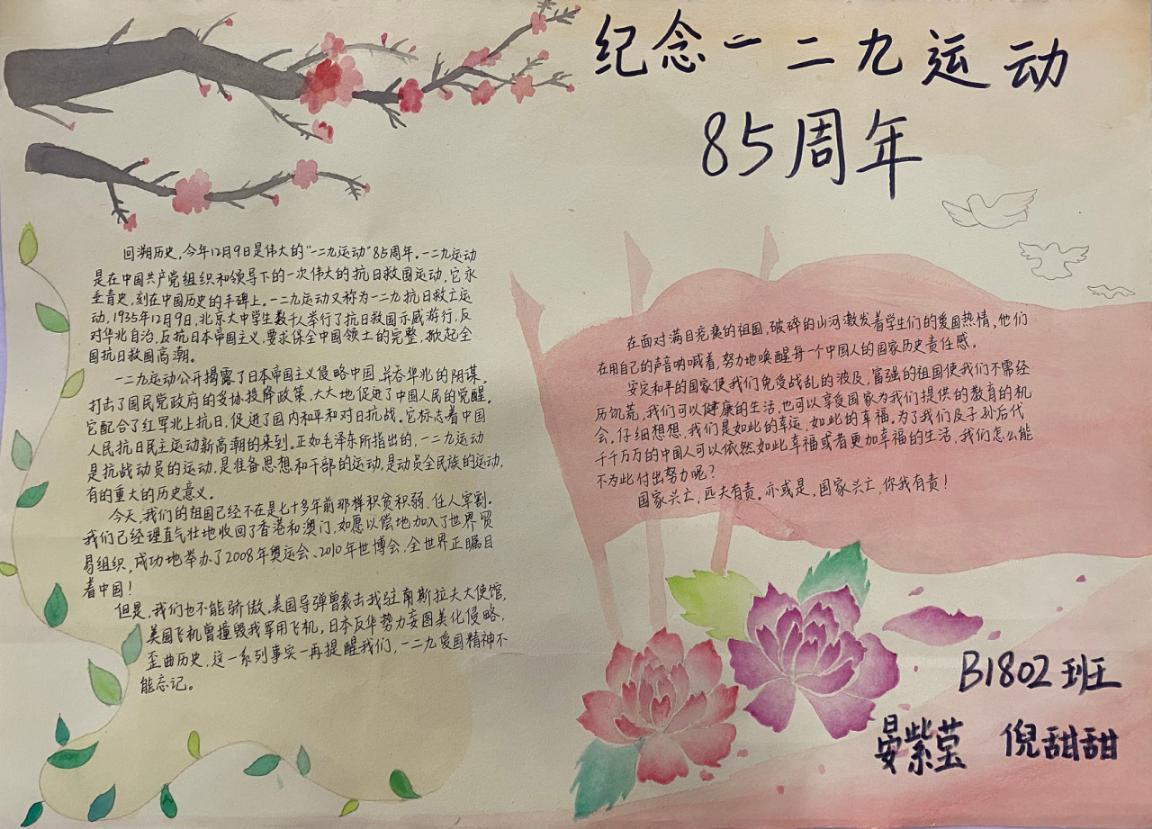 纪念一二九运动
85周年
回溯历史,今年12月9日是伟大的"一二九运动"85周年。一二九运动
是在中国共产党组织和领导下的一次伟大的抗日救国运动,它永
垂青史,刻在中国历史的丰碑上。一二九运动又称为一二九抗日救亡运
动,1935年12月9日,北京大中学生数千人举行了抗日救国示威游行,反
对华北自治,反抗日本帝国主义,要求保全中国领土的完整,掀起全
国抗日救国高潮。
一二九运动公开揭露了日本帝国主义侵略中国,并吞华北的阴谋,
打击了国民党政府的妥协投降政策,大大地促进了中国人民的觉醒。
它配合了红军北上抗日,促进了国内和平和对日抗战。它标志着中国
人民抗日民主运动新高潮的来到。正如毛泽东所指出的,一二九运动
是抗战动员的运动,是准备思想和干部的运动,是动员全民族的运动,
有的重大的历史意义。
今天,我们的祖国已经不在是七十多年前那样积贫积弱、任人宰割。
我们已经理直气壮地收回了香港和澳门,如愿以偿地加入了世界贸
易组织,成功地举办了2008年奥运会、2010年世博会,全世界正瞩目
着中国!
但是,我们也不能骄傲。美国导弹曾袭击我驻南斯拉夫大使馆,
美国飞机曾撞毁我军用飞机,日本反华势力妄图美化侵略,
歪曲历史,这一系列事实一再提醒我们,一二九爱国精神不
能忘记。
在面对满目疮痍的祖国,破碎的山河激发着学生们的爱国热情,他们
在用自己的声音呐喊着,努力地唤醒每一个中国人的国家历史责任感。
安定和平的国家使我们免受战乱的波及,富强的祖国使我们不需经
历饥荒,我们可以健康的生活,也可以享受国家为我们提供的教育的机
会。仔细想想,我们是如此的幸运,如此的幸福。为了我们及子孙后代
千千万万的中国人可以依然如此幸福或者更加幸福的生活,我们怎么能
不为此付出努力呢?
国家兴亡,匹夫有责。亦或是,国家兴亡,你我有责!
B1802班
晏紫莹 倪甜甜